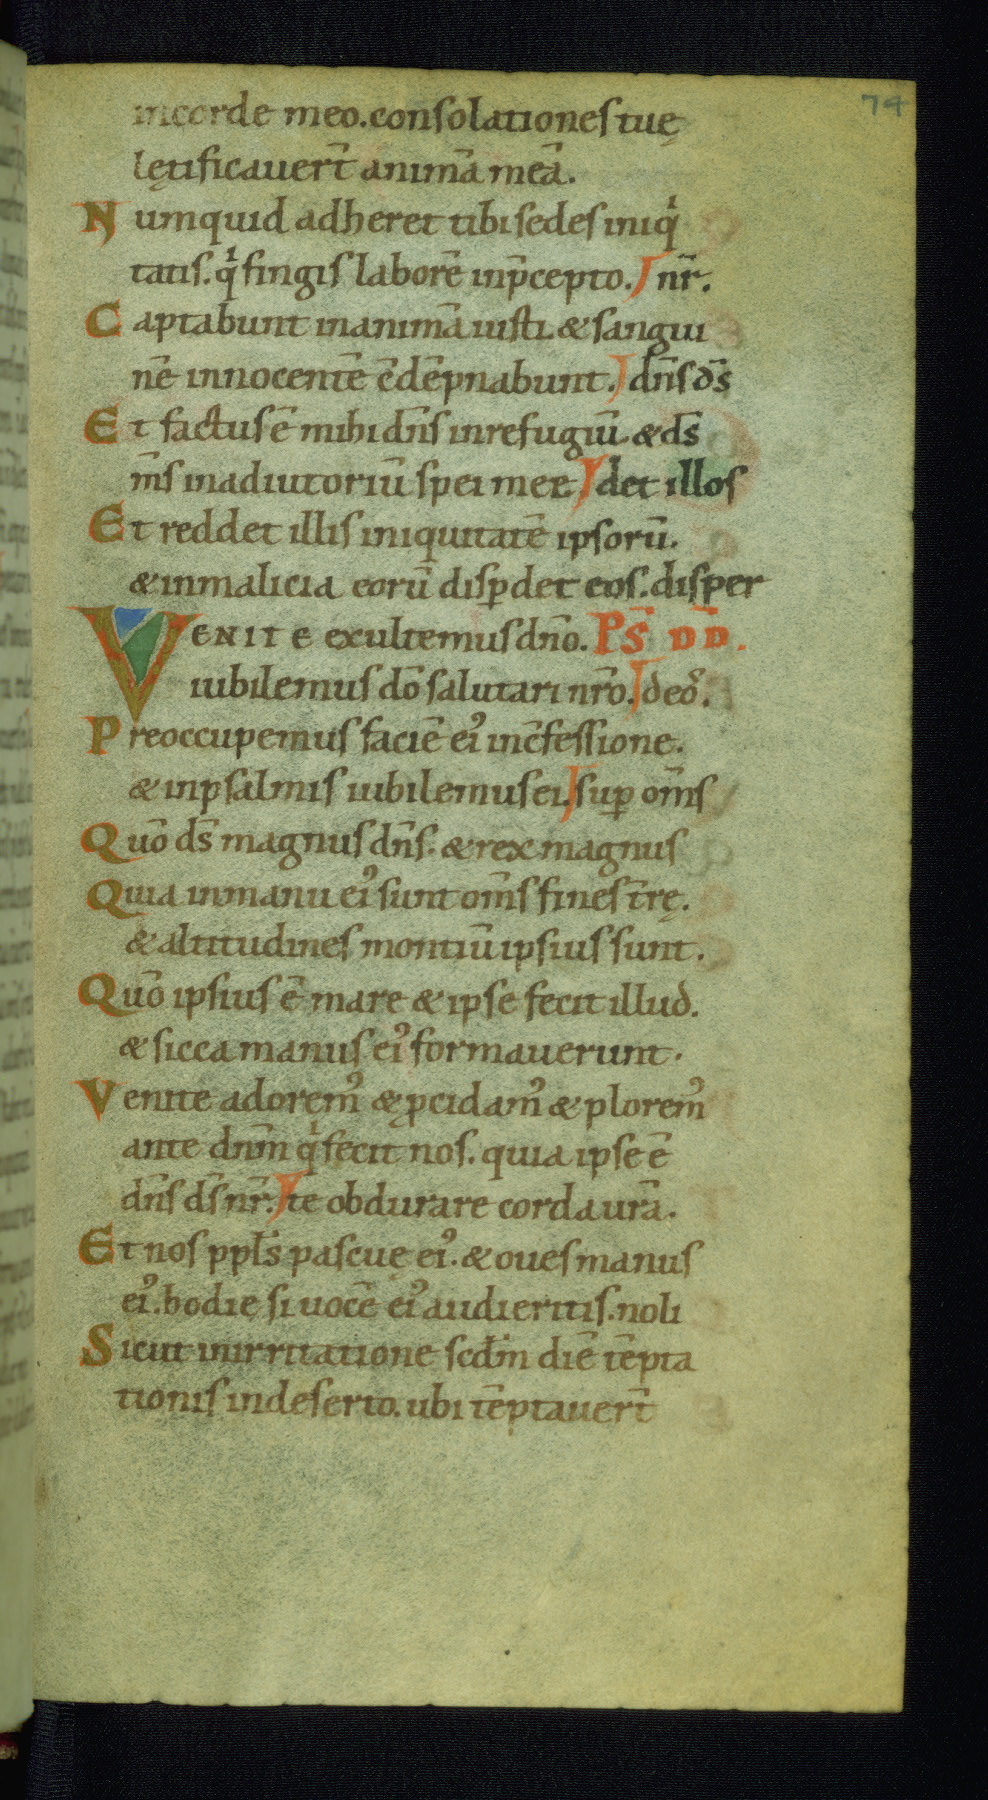 74
incorde meo. consolationes tuę
lętificauer̄t animā meā.
Numquid adheret tibi sedes iniqͥ
tatis. qͥ fingis laborē inp̄cepto. nr̄.
Captabunt inanimā iusti. & sangui
nē innocentē c̄dēpnabunt. dn̄s ds̄
Et factus ē mihi dn̄s inrefugiū. & ds̄
m̄s inadiutoriū spei meę det illos
Et reddet illis iniquitatē ipsorū.
& inmalicia eorū disp̄det eos. disper
VENITE exultemus dn̄o. PS̄ D̄D̄.
iubilemus dō salutari nr̄o. deoꝰ.
Preoccupemus faciē eiꝰ inc̄fessione.
& inpsalmis iubilemus ei. sup̄ om̄s
Quō ds̄ magnus dn̄s. & rex magnus
Quia inmanu eiꝰ sunt om̄s fines t̄rę.
& altitudines montiū ipsius sunt.
Quō ipsius ē mare & ipse fecit illud.
& sicca manus eiꝰ formauerunt.
Venite adoremꝰ & p̱cidamꝰ & ploremꝰ
ante dn̄m qͥ fecit nos. quia ipse ē
dn̄s ds̄ nr̄. te obdurare corda ur̄a.
Et nos ppl̄s pascuę eiꝰ. & oues manus
eiꝰ. hodie si uocē eiꝰ audieritis. noli
Sicut inirritatione scd̄m diē tēpta
tionis indeserto. ubi tēptauer̄t